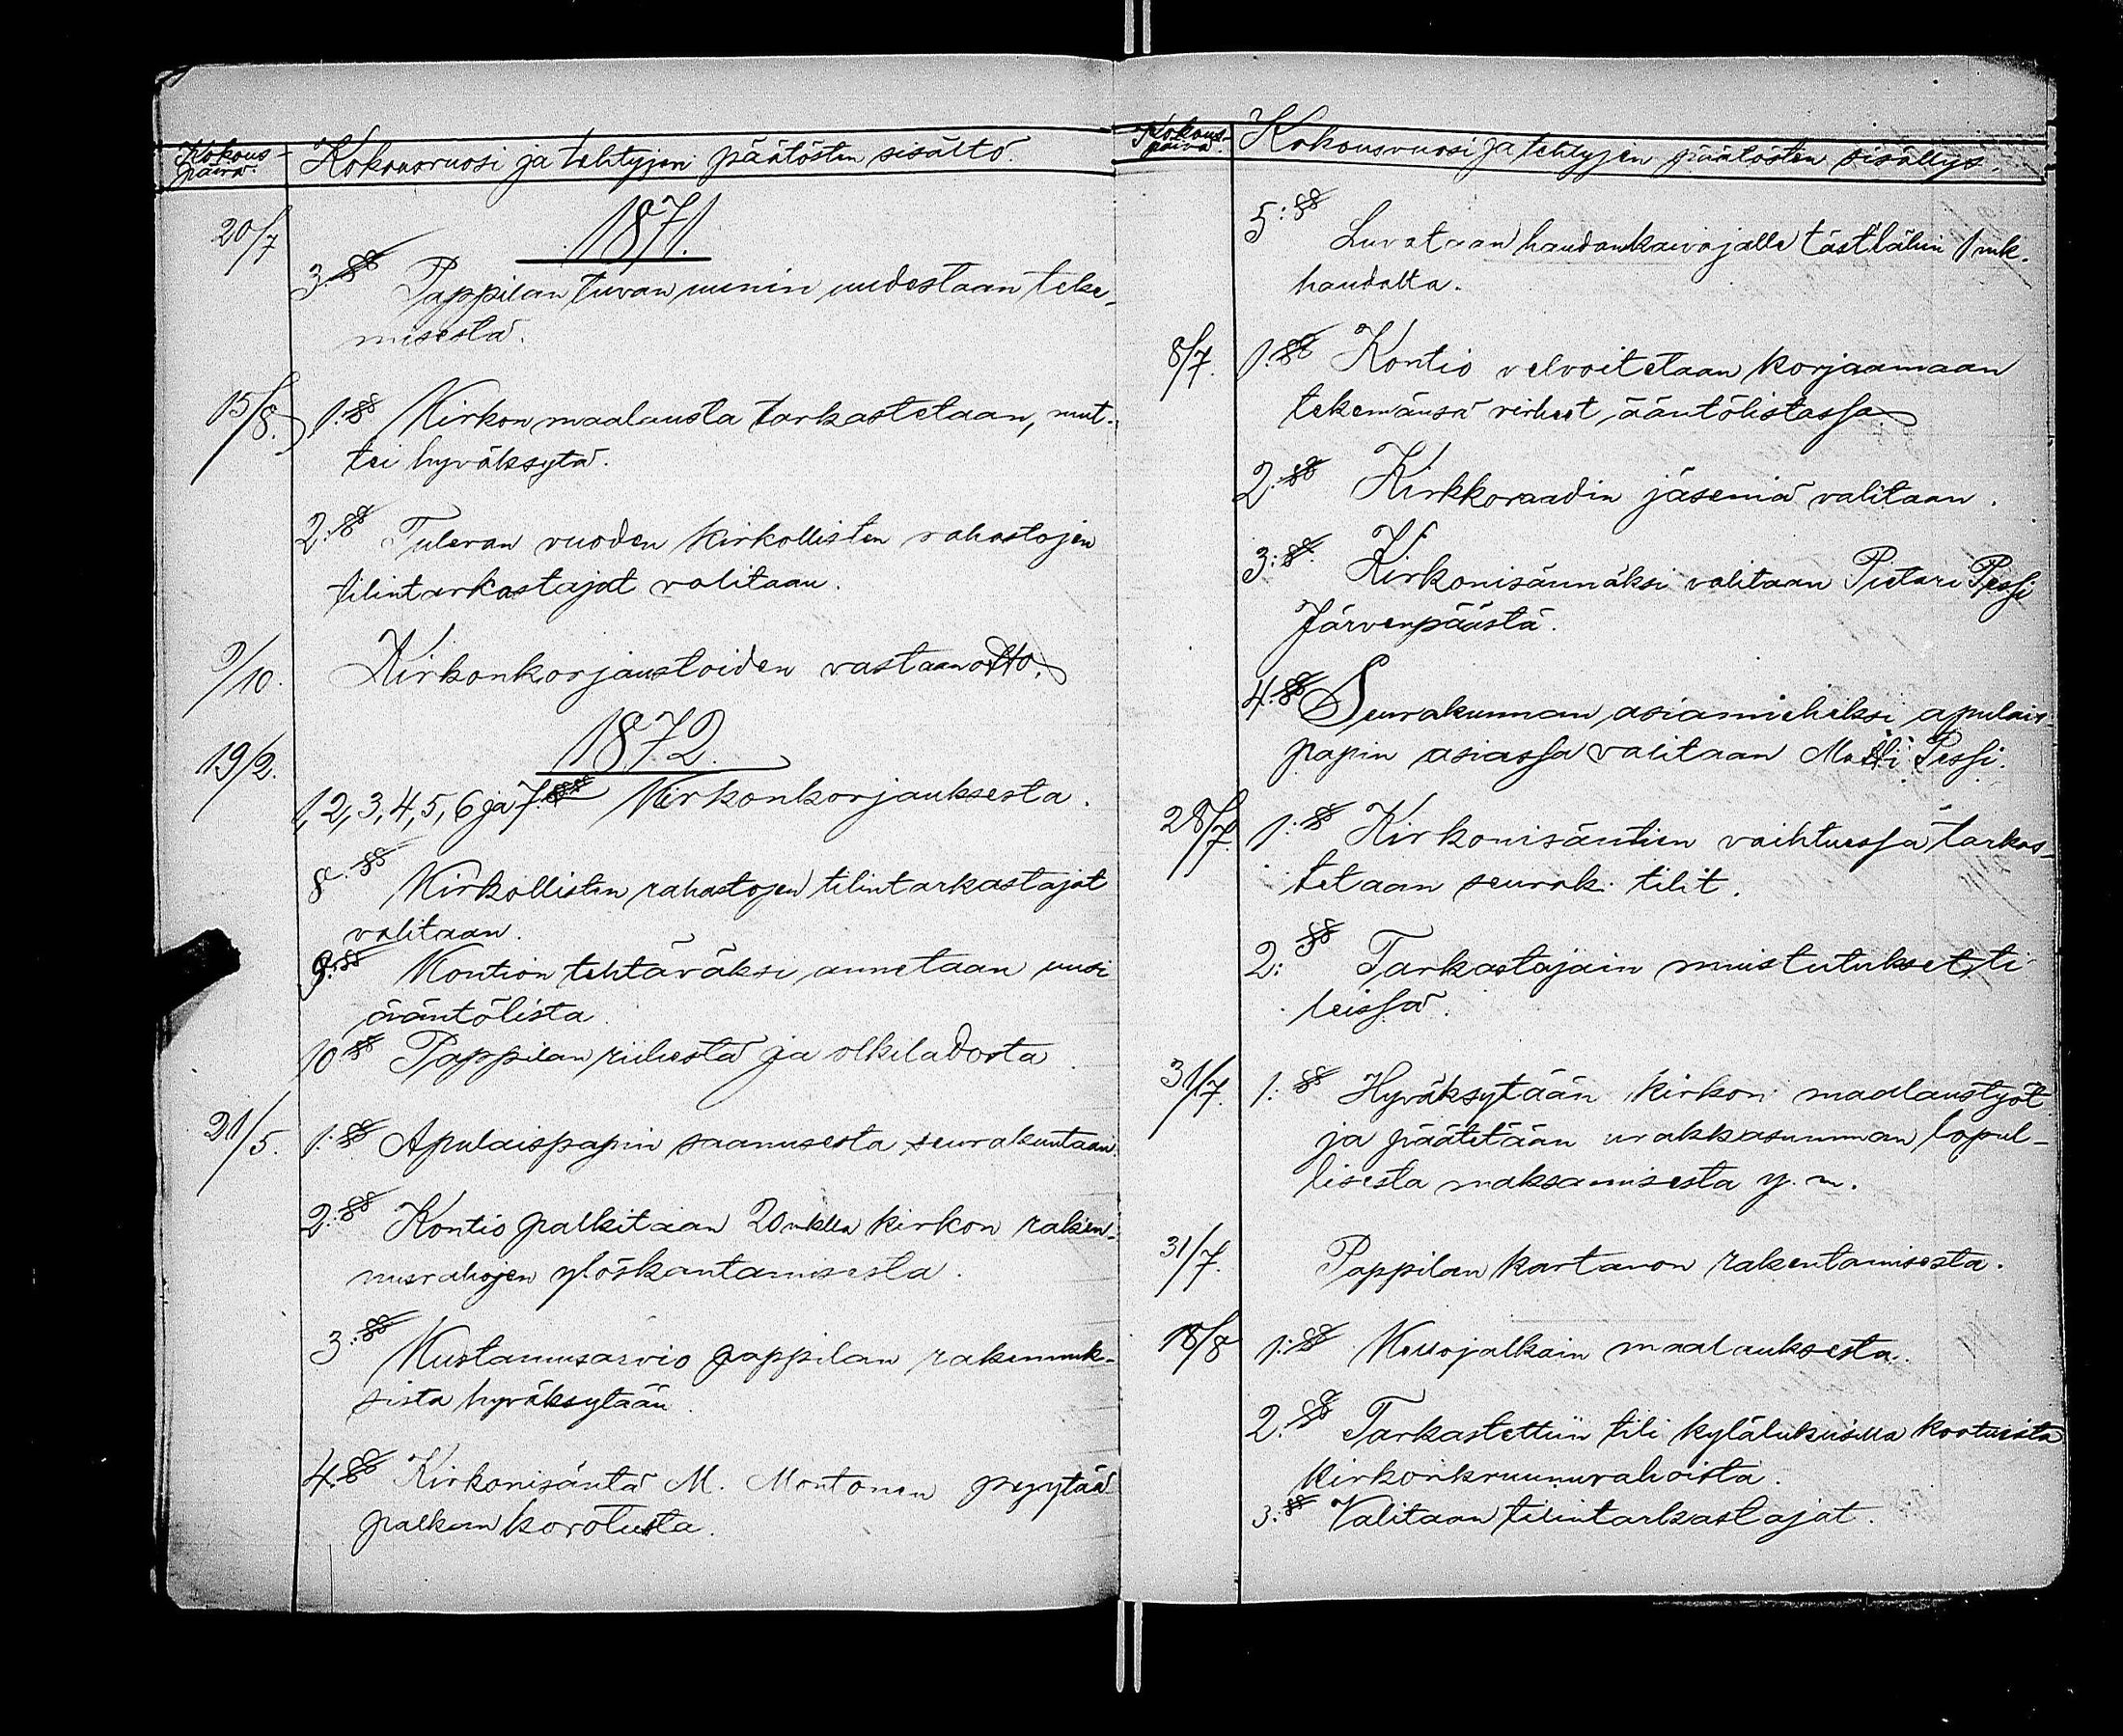 Kokous-
päivä.
Kokousvuosi ja tehtyjen päätösten sisältö.
1871.
20/7
3:§§ Pappilan tuvan uunin uudestaan teke-
misestä.
15/8. 1:§§ Kirkon maalausta tarkastetaan, mut-
tei hyväksytä.
2:§§ Tulevan vuoden kirkollisten rahastojen
tilintarkastajat valitaan.
9/10. Kirkonkorjaustoiden vastaanotto.
1872.
19/2.
1, 2, 3, 4, 5, 6 ja 7:§§ Kirkonkorjauksesta.
8:§§ Kirkollisten rahastojen tilintarkastajat
valitaan.
9:§§ Kontion tehtäväksi annetaan uusi
ääntölista.
10 §§ Pappilan riihestä ja olkiladosta.
21/5. 1:§§ Apulaispapin saamisesta seurakuntaan.
2:§§ Kontio palkitaan 20 mklla kirkon raken-
nusrahojen ylöskantamisesta.
3:§§ Kustannusarvio pappilan rakennuk-
sista hyväksytään.
4:§§ Kirkonisäntä M. Montonen pyytää
palkan korotusta.
Kokous-
päivä
Kokousvuosi ja tehtyjen päätösten sisällys.
5:§§ Luvataan haudankaivajalle tästälähin 1 mk.
haudalta.
8/7. 1:§§ Kontio velvoitetaan korjaamaan
tekemänsä virheet ääntölistassa.
2:§§ Kirkkoraadin jäseniä valitaan.
3:§§ Kirkonisännäksi valitaan Pietari Pessi
Järvenpäästä.
4:§§ Seurakunnan asiamieheksi apulais-
papin asiassa valitaan Matti Pessi.
28/7. 1:§§ Kirkonisäntien vaihtuessa tarkas-
tetaan seurak. tilit.
2:§§ Tarkastajain muistutukset ti-
leissä.
31/7. 1:§§ Hyväksytään kirkon maalaustyöt
ja päätetään urakkasumman lopul-
lisesta maksamisesta y. m.
31/7. Pappilan kartanon rakentamisesta.
18/8 1:§§ Kuojalkain maalauksesta.
2:§§ Tarkastettiin tili kylälukusilla kootuista
kirkonkruunurahoista.
3:§§ Valitaan tilintarkastajat.